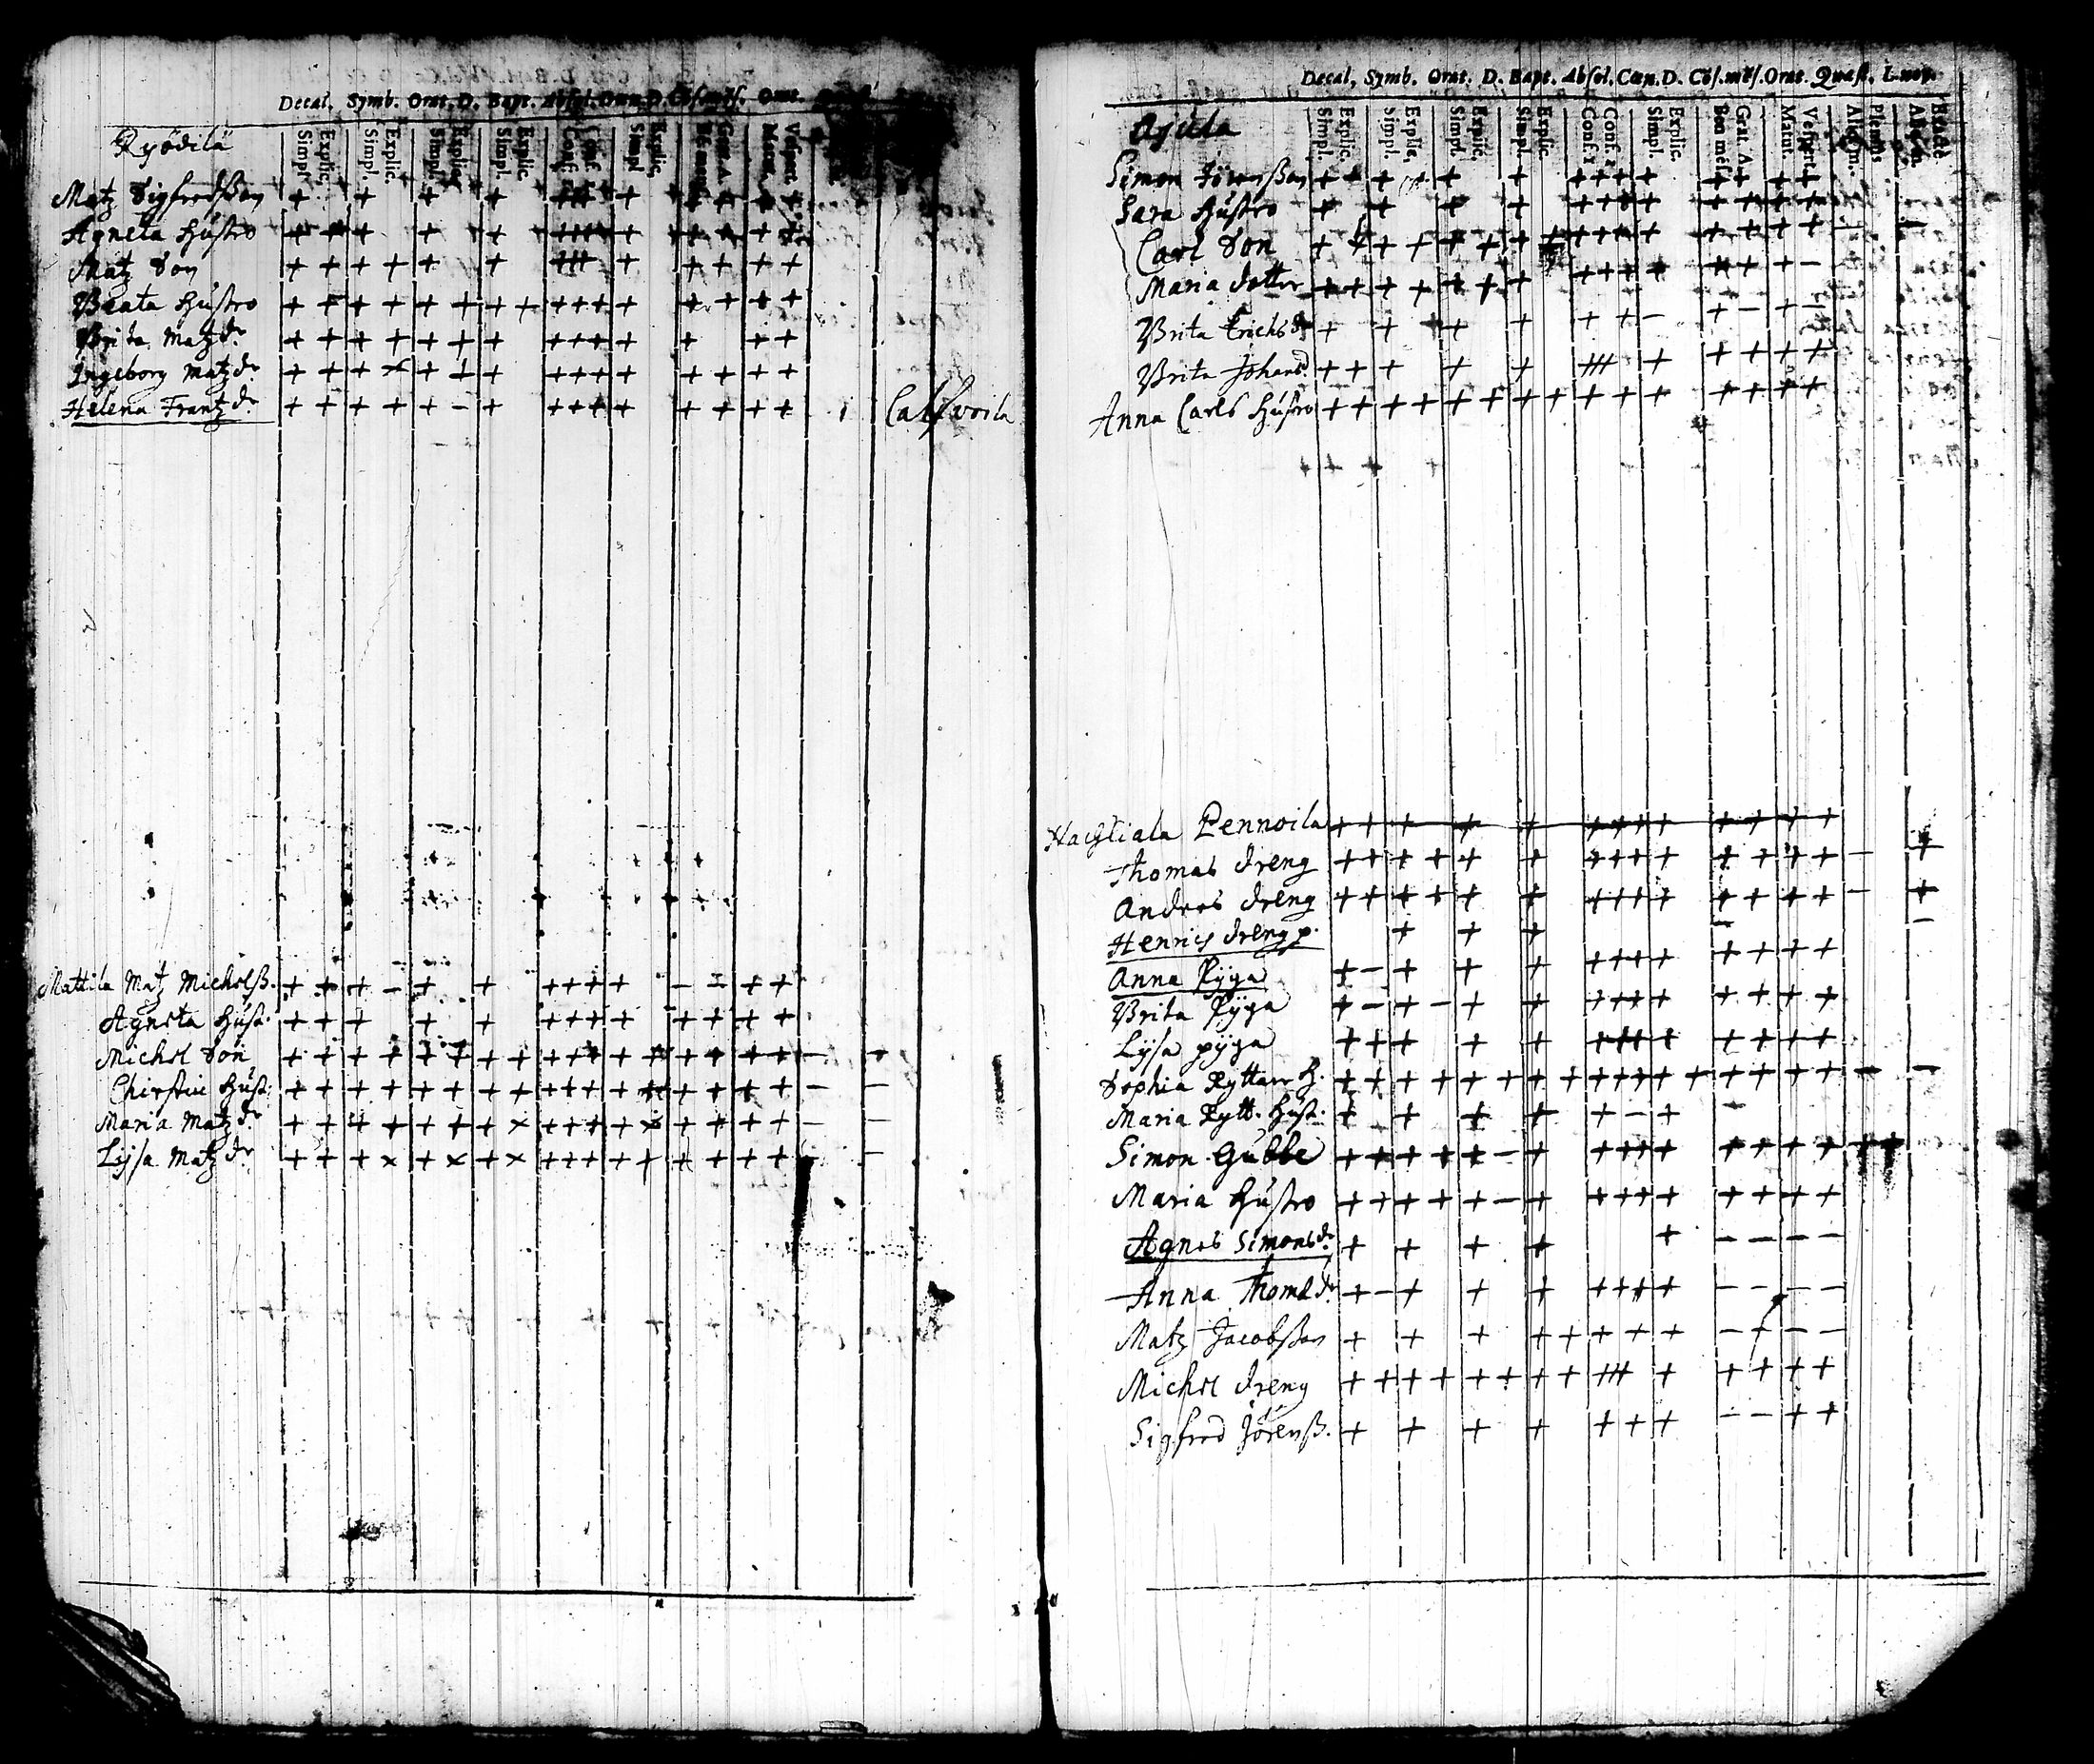 Decal. Symb. Orat. D. Bapt. Absol. Cœn. D. Cōf. mēs. Orat.
Ryödilä
Simpl. Explic. Simpl. Explic. Simpl. Explic. Simpl. Explic. Conf. Conf. Simpl. Explic. Grat. A. Vespert
Matz Sigfredßon + + + + +++ + + + + +
Agneta hustro + + + + + ++++ + + + + +
Matz Son + + + + + + +++ + + + + +
Beata hustro + + + + + + + + ++++ + + + +
Brita Matzdr + + + + + + + ++++ + + +
Ingeborg Matzdr + + + + + + + ++++ + + + +
Helena Frantzdr + + + + + - + ++++ + + + + 1 Calfvoila
Mattila Matz Michelß. + + + - + + ++++ + - + +
Agneta hust. + + + + + ++++ + + + +
Michel Son + + + + + + + + +++ + + + + + + -
Chirstin hust: + + + + + + + + +++ + + + + + - -
Maria Matzdr + + + + + + + × +++ + × + + + + - -
Lysa Matzdr + + + × + × + × +++ + + + + + + -
Decal. Symb. Orat. D. Bapt. Absol. Cœn. D. Cōf. mēs. Orat. Quæst. L. nov.
Ojula
Simpl. Explic. Simpl. Explic. Simpl. Explic. Simpl. Explic. Conf. 1 Conf. 2 Simpl. Explic. Ben mēs Grat. A. Matut. Vespert Aliqm. Plenius
Simon Jörenßon + + + + + ++++ + + + +
Sara hustro + + + + +++ + + + + +
Carl Son + + + + + + + + ++++ + + + + - -
Maria dotter + + + + + + + +++ + + + + -
Brita Erichsdr + + + + + + - + - + -
Brita Johansd. + + + + + +++ + + + + +
Anna Carls hustro + + + + + + + + + + + + + + +
Hachtiala Pennoila + + + + + ++++ + + + +
Thomas dreng + + + + + + ++++ + + + + - +
Andres dreng + + + + + + ++++ + + + + - +
Henrich dreng p. + + + - -
Anna Pyga + - + + + +++ + + + + +
Brita Pyga + - + - + + ++++ + + + +
Lysa pyga + + + + + +++ + + + + +
Sophia Ryttare h. + + + + + + + + ++++ + + + + + - -
Maria Rytt. Hust. + + + + + - + -
Simon Gubbe + + + + + - + ++++ + + + +
Maria hustro + + + + + - + ++++ + + + +
Agnes Simonsdr + + + + + - - - -
Anna Thomadr + - + + + ++++ - - - -
Matz Jacobßon + + + + + + + + - + - -
Michel dreng + + + + + + + + +++ + + + + +
Sigfred Jörenß. + + + + + + + - - + +